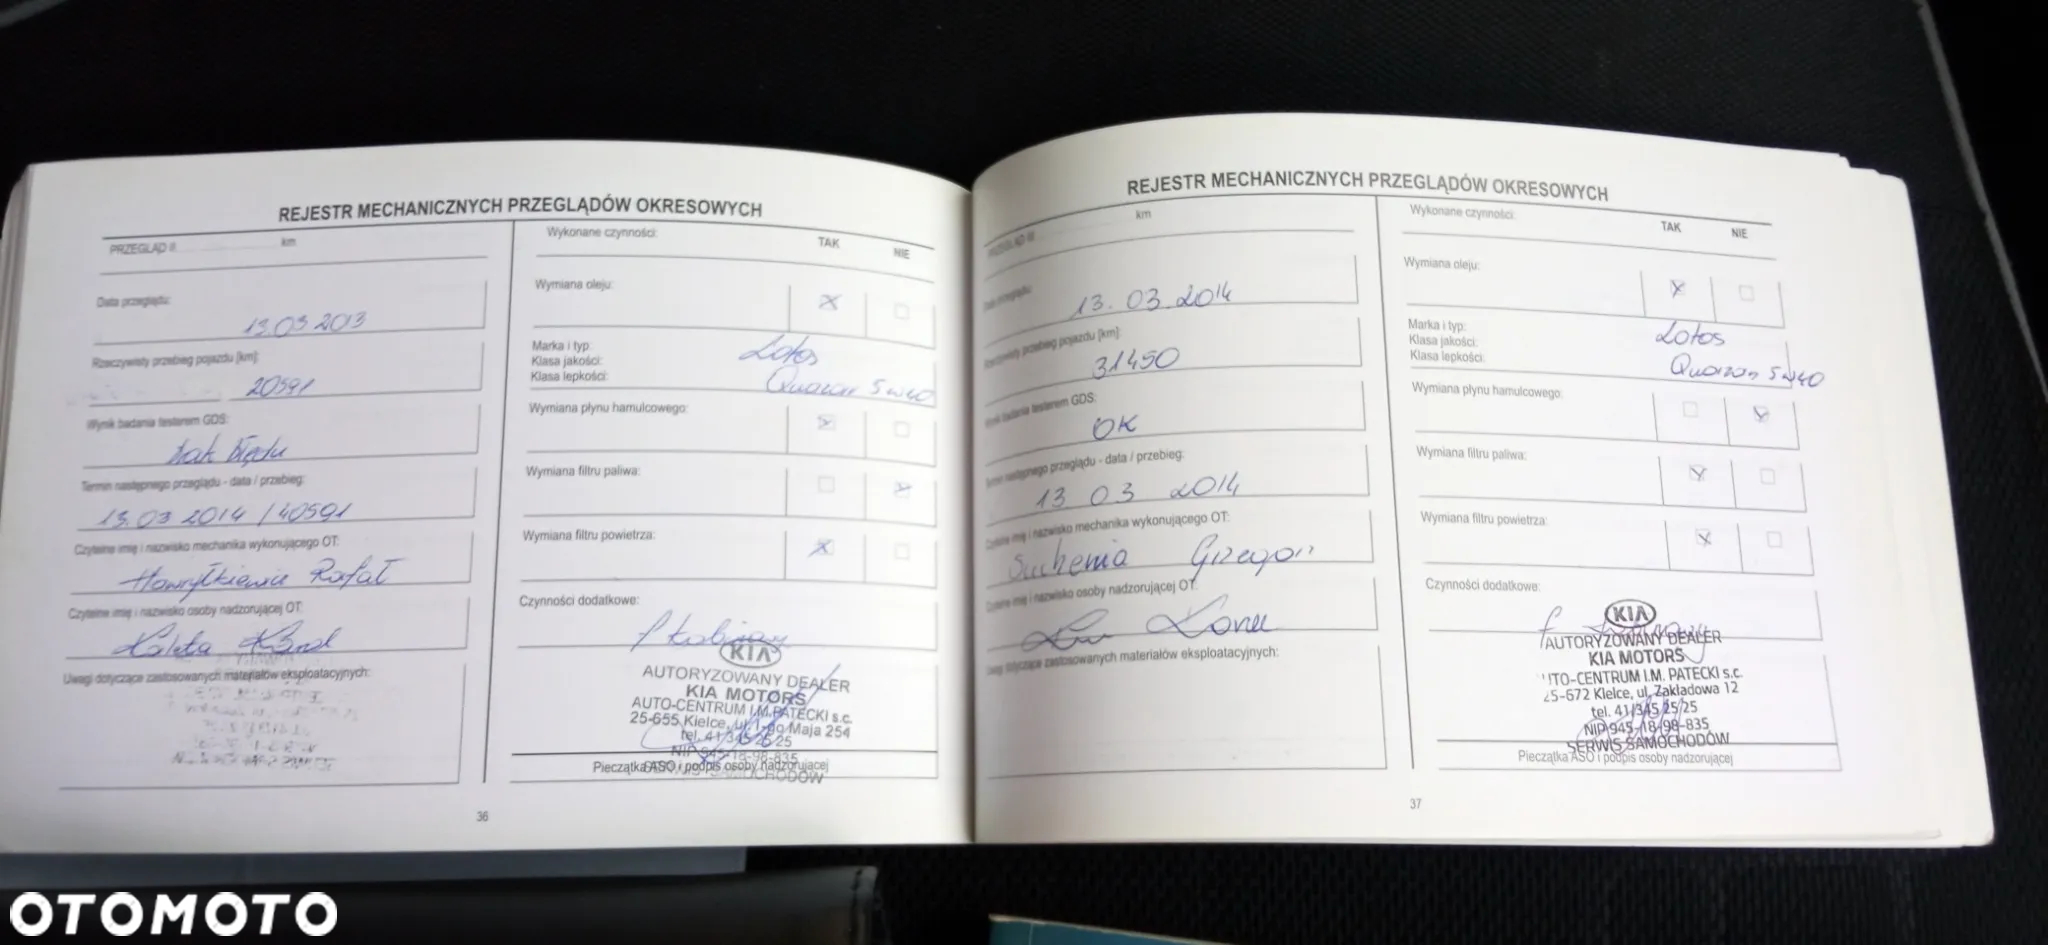 REJESTR MECHANICZNYCH PRZEGLĄDÓW OKRESOWYCH
PRZEGLĄD II km
Data przeglądu:
13.03 2013
Rzeczywisty przebieg pojazdu [km]:
20591
Wynik badania testerem GDS:
brak błędu
Termin następnego przeglądu - data / przebieg:
13.03 2014 / 40591
Czytelne imię i nazwisko mechanika wykonującego OT:
Rafał
Czytelne imię i nazwisko osoby nadzorującej OT:
Uwagi dotyczące zastosowanych materiałów eksploatacyjnych:
Wykonane czynności:
TAK NIE
Wymiana oleju:
Marka i typ:
Klasa jakości:
Klasa lepkości:
Lotos
Quazar 5w40
Wymiana płynu hamulcowego:
Wymiana filtru paliwa:
Wymiana filtru powietrza:
Czynności dodatkowe:
KIA
AUTORYZOWANY DEALER
KIA MOTORS
AUTO-CENTRUM I.M.PATECKI s.c.
25-655 Kielce, ul. 1-go Maja 254
tel. 41/345 25 25
NIP 945-18-98-835
SERWIS SAMOCHODÓW
Pieczątka ASO i podpis osoby nadzorującej
36
REJESTR MECHANICZNYCH PRZEGLĄDÓW OKRESOWYCH
PRZEGLĄD III km
Data przeglądu:
13. 03. 2014
Rzeczywisty przebieg pojazdu [km]:
31450
Wynik badania testerem GDS:
OK
Termin następnego przeglądu - data / przebieg:
13 03 2014
Czytelne imię i nazwisko mechanika wykonującego OT:
Czytelne imię i nazwisko osoby nadzorującej OT:
Uwagi dotyczące zastosowanych materiałów eksploatacyjnych:
Wykonane czynności:
TAK NIE
Wymiana oleju:
Marka i typ:
Klasa jakości:
Klasa lepkości:
Lotos
Quazar 5w40
Wymiana płynu hamulcowego:
Wymiana filtru paliwa:
Wymiana filtru powietrza:
Czynności dodatkowe:
KIA
AUTORYZOWANY DEALER
KIA MOTORS
UTO-CENTRUM I.M. PATECKI s.c.
25-672 Kielce, ul. Zakładowa 12
tel. 41/345 25/25
NIP 945-18-98-835
SERWIS SAMOCHODÓW
Pieczątka ASO i podpis osoby nadzorującej
37
OTOMOTO